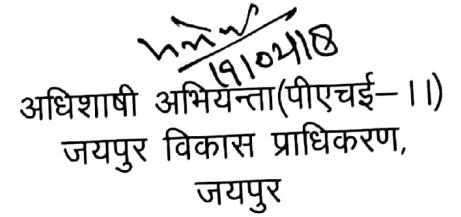 19/04/18
अधिशाषी अभियन्ता(पीएचई–।।)
जयपुर विकास प्राधिकरण,
जयपुर